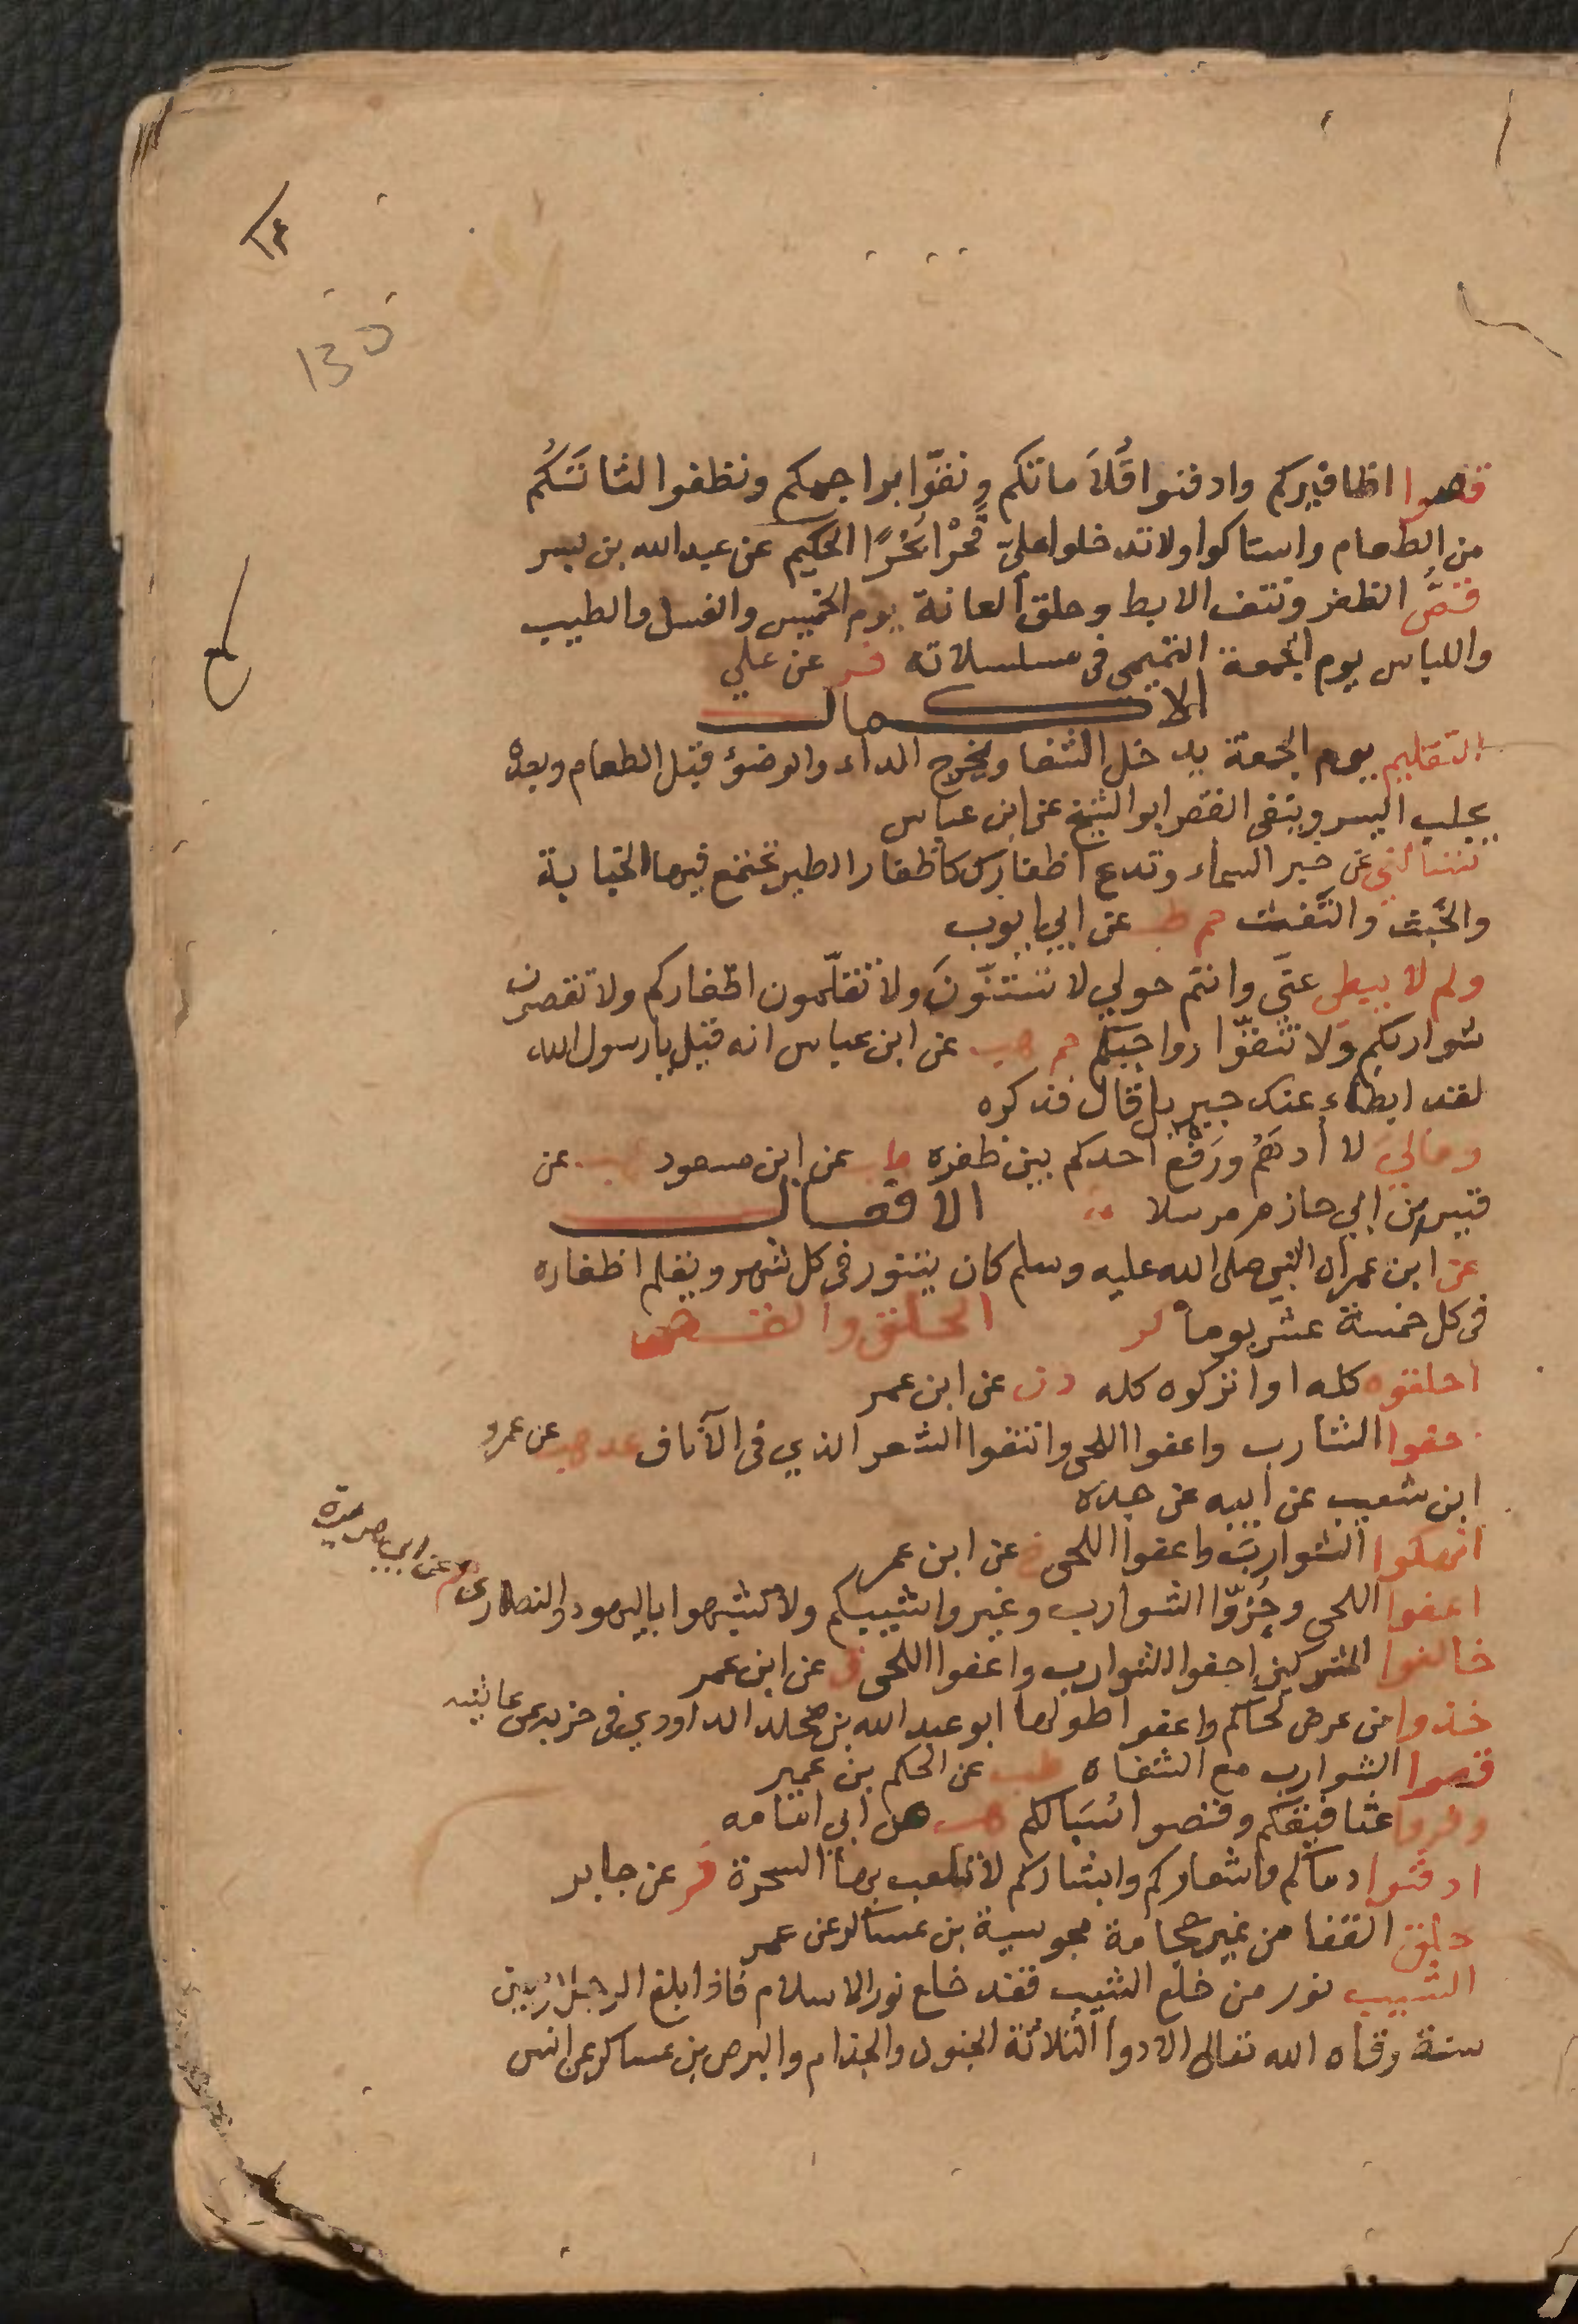 ١٣٥
قصوا اظافيركم وادفنوا قُلَاماتكم ونقّوا براجمكم ونظفوا لثاتَكُم
من الطعام واستاكوا ولا تدخلوا عليّ قُحْرًا بُخْرًا الحكيم عن عبد الله بن بسر
قصُّ الظفر ونتف الابط وحلق العانة يوم الخميس والغسل والطيب
واللباس يوم الجمعة التيمى فى مسلسلاته فر عن علي
الاكمال
التقليم يوم الجمعة يدخل الشفا ويخرج الداء والوضؤ قبل الطعام وبعده
يجلب اليسر وينفى الفقر ابو الشيخ عن ابن عباس
تسألني عن خبر السماء وتدع اظفارك كاظفار الطير تجتمع فيها الجنابة
والخَبث والتَّفث حم طب عن ابي ايوب
ولم لا يبطى عنّى وانتم حولي لا تستنّونَ ولا تقلّمون اظفاركم ولا تقصون
شواربكم ولا تنقّوا رواجبكم حم هب عن ابن عباس انه قيل يا رسول الله
لقد ابطاء عنك جبريل قال فذكره
ومالي لا أَدهَمُ ورَفْغ احدكم بين ظفره طب عن ابن مسعود هب عن
قيس بن ابي حازم مرسلا الافعال
عن ابن عمر ان النبي صلى الله عليه وسلم كان يتنور فى كل شهر ويقلم اظفاره
فى كل خمسة عشر يوما كر الحلق والقص
احلقوه كله او اتركوه كله د ن عن ابن عمر
حفوا الشارب واعفوا اللحى وانتفوا الشعر الذي فى الآناف عد هب عن عمرو
ابن شعيب عن ابيه عن جده
انهكوا الشوارب واعفوا اللحى خ عن ابن عمر
اعفوا اللحى وجُزّوا الشوارب وغيروا شيبكم ولا تشبهوا باليهود والنصارى حم عن ابي هريرة
خالفوا المشركين احفوا الشوارب واعفوا اللحى ق عن ابن عمر
خذوا من عرض لحاكم واعفوا طولها ابو عبد الله بن مخلد الداودي فى جزيه عن عايشه
قصوا الشوارب مع الشفاه طب عن الحكم بن عمير
وفروا عثانينكم وقصوا سَبالكم هب عن ابى امامه
ادفنوا دماكم واشعاركم وابشاركم لا تلعب بها السحرة فر عن جابر
حلق القفا من غير حجامة مجوسية بن عساكر عن عمر
الشيب نور من خلع الشيب فقد خلع نور الاسلام فاذا بلغ الرجل اربعين
سنة وقاه الله تعالى الادوا الثلاثة الجنون والجذام والبرص بن عساكر عن انس